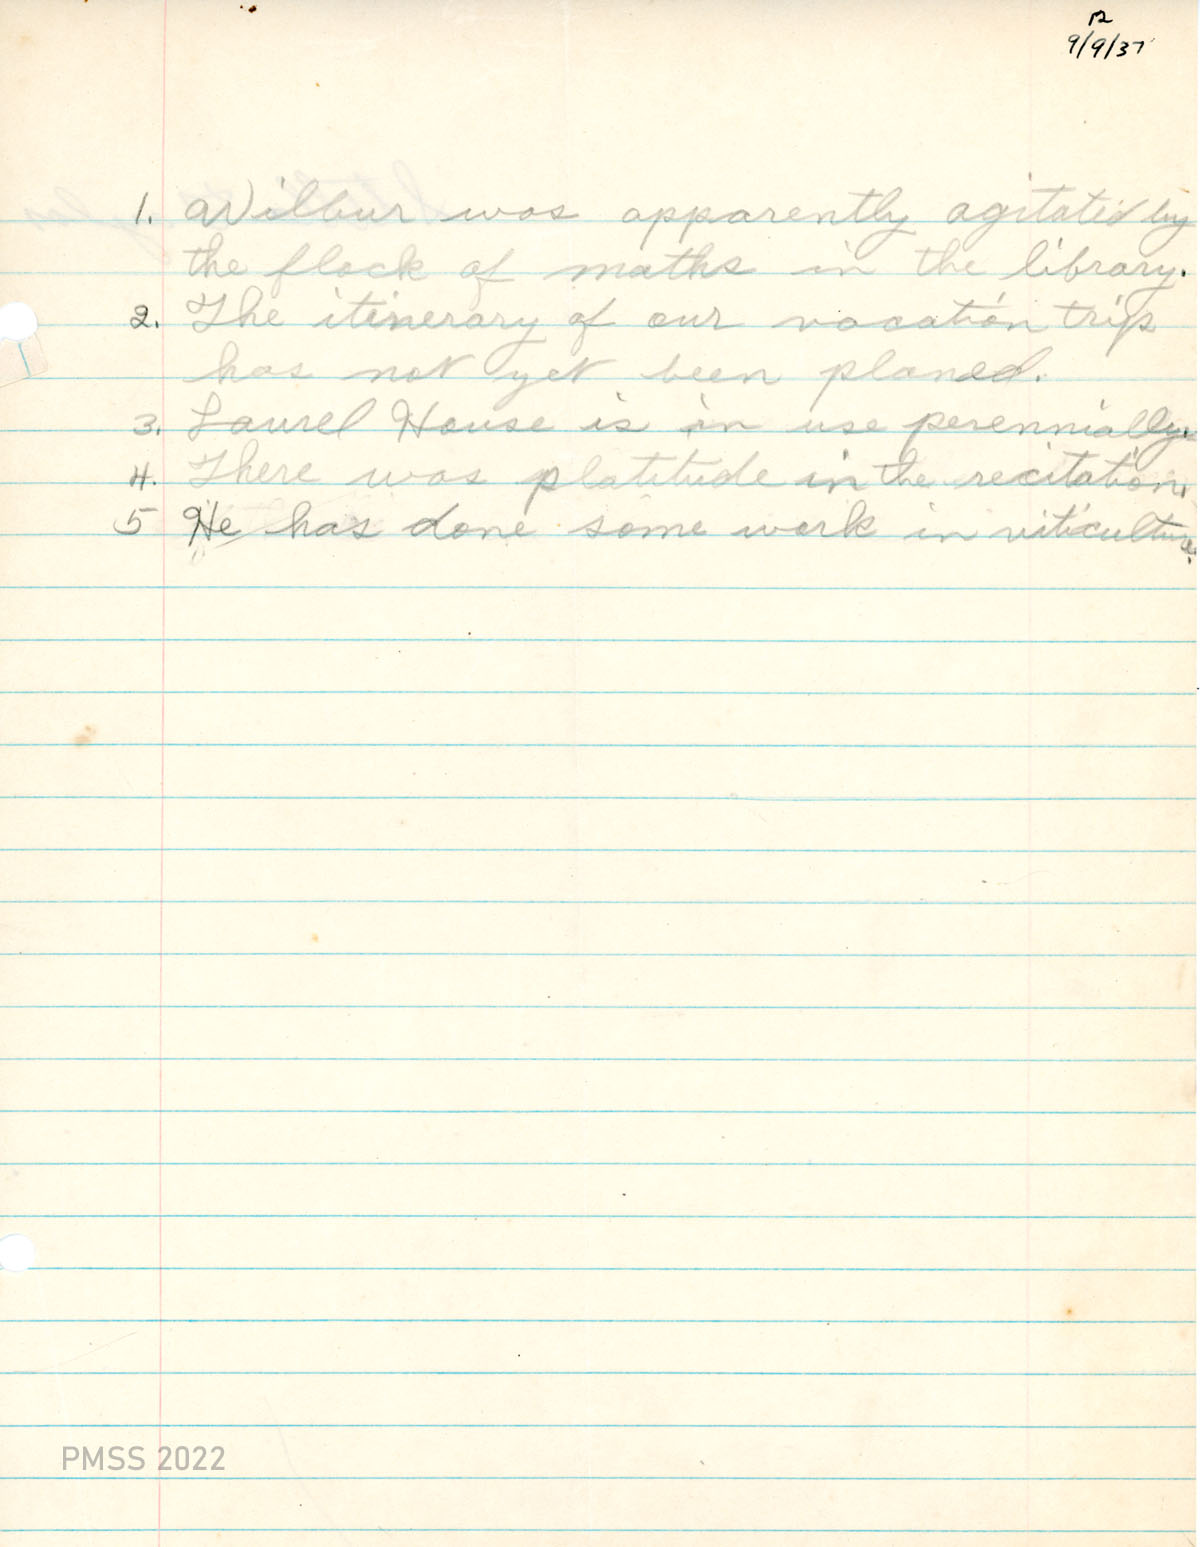 12
9/9/37
1. Wilbur was apparently agitated by
the flock of maths in the library.
2. The itinerary of our vacation trip
has not yet been planed.
3. Laurel House is in use perennially.
4. There was platitude in the recitation.
5 He has done some work in viticulture.
PMSS 2022